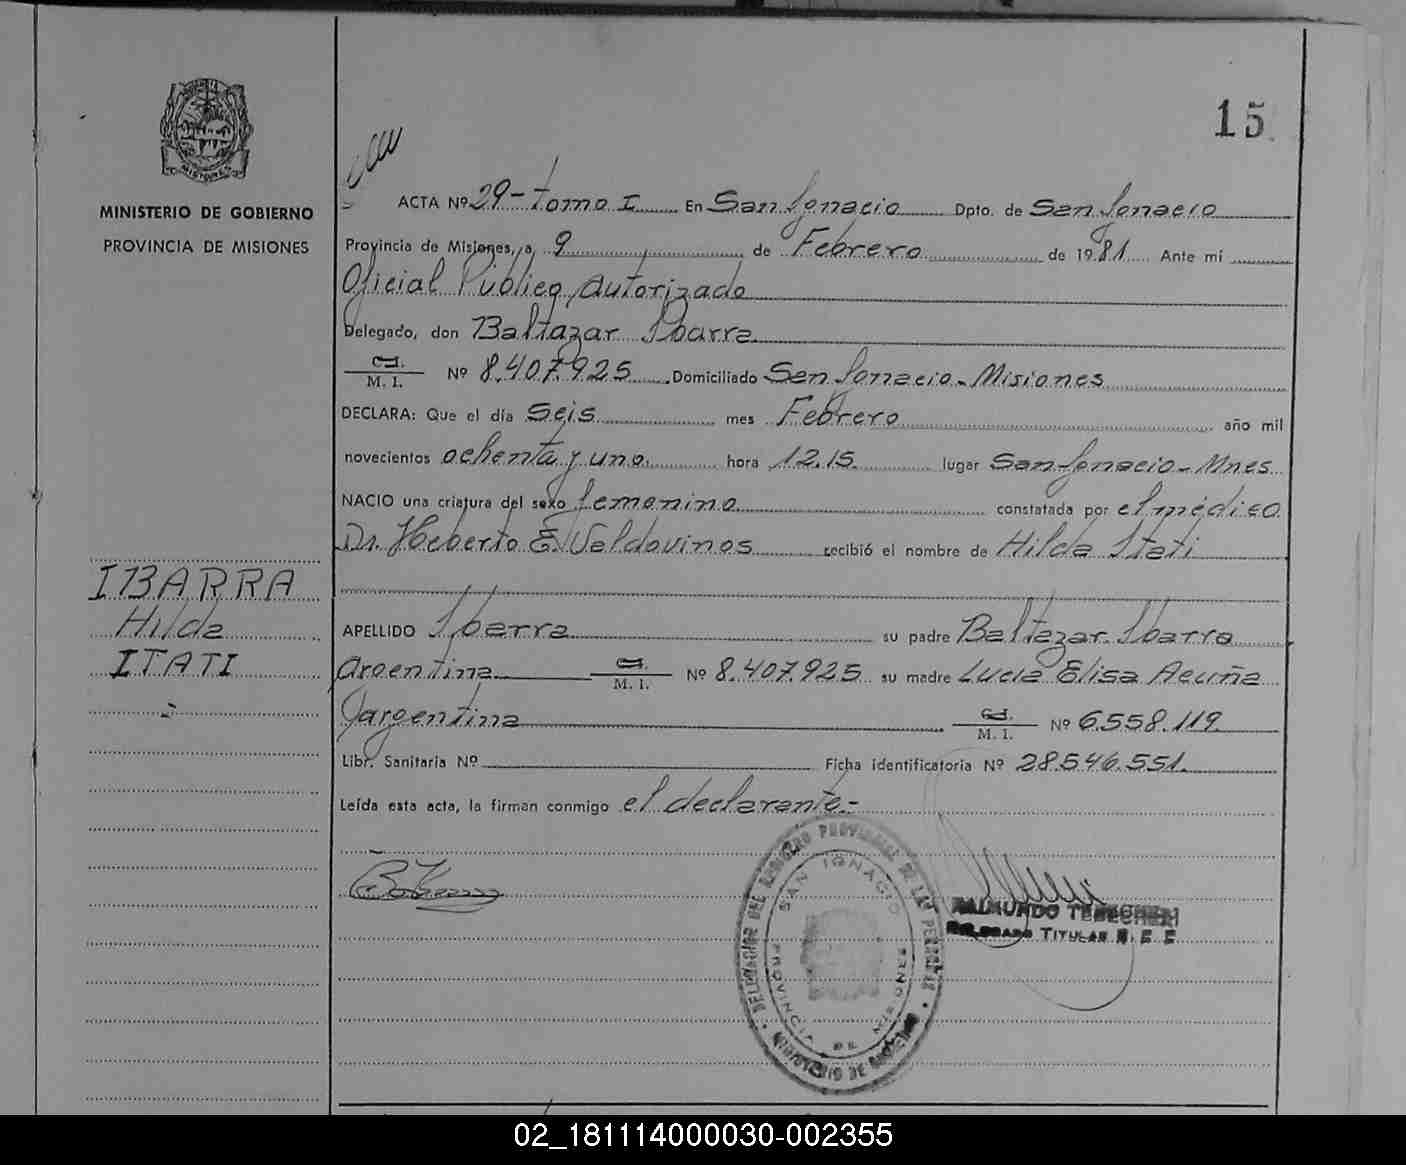 15
MINISTERIO DE GOBIERNO
PROVINCIA DE MISIONES
MISIONES
IBARRA
Hilda
ITATI
ACTA Nº 29 - tomo I En San Ignacio Dpto. de San Ignacio
Provincia de Misiones, a 9 de Febrero de 1981 Ante mi
Oficial Público Autorizado
Delegado, don Baltazar Ibarra
C.I.
M. I. Nº 8.407.925 Domiciliado San Ignacio - Misiones
DECLARA: Que el día Seis mes Febrero año mil
novecientos ochenta y uno hora 12.15 lugar San Ignacio - Mnes
NACIO una criatura del sexo femenino constatada por el médico
Dr. Heberto E. Valdovinos recibió el nombre de Hilda Itati
APELLIDO Ibarra su padre Baltazar Ibarra
argentina C.I. M. I. Nº 8.407.925 su madre Lucia Elisa Acuña
argentina C.I. M. I. Nº 6.558.119.
Libr. Sanitaria Nº Ficha identificatoria Nº 28.546.551.
Leída esta acta, la firman conmigo el declarante.-
DELEGACION DEL REGISTRO PROVINCIAL DE LAS PERSONAS
SAN IGNACIO
PROVINCIA DE MISIONES
MINISTERIO DE GOBIERNO
RAIMUNDO
DELEGADO TITULAR
02_181114000030-002355